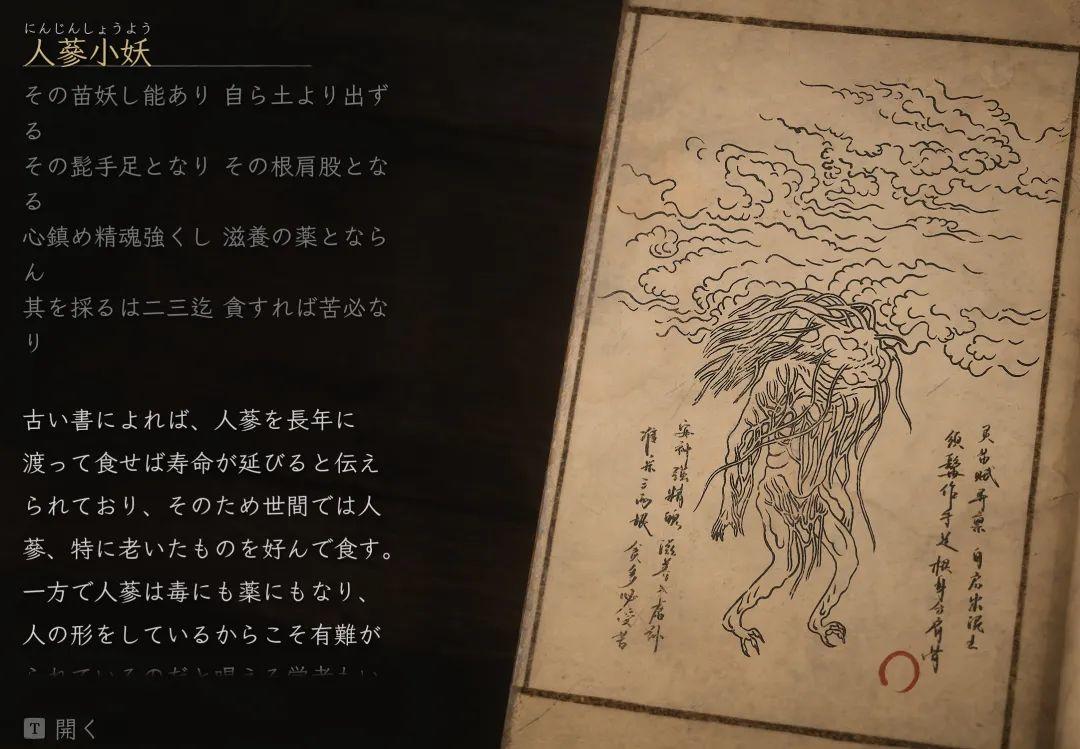 にんじんしょうよう
人蔘小妖
その苗妖し能あり 自ら土より出ず
る
その髭手足となり その根肩股とな
る
心鎮め精魂強くし 滋養の薬となら
ん
其を採るは二三迄 貪すれば苦必な
り
古い書によれば、人蔘を長年に
渡って食せば寿命が延びると伝え
られており、そのため世間では人
蔘、特に老いたものを好んで食す。
一方で人蔘は毒にも薬にもなり、
人の形をしているからこそ有難が
られているのだと唱える学者もい
T 開く
自 出泥土
鬚作手足
安神強精魄 滋養
貪多必受苦